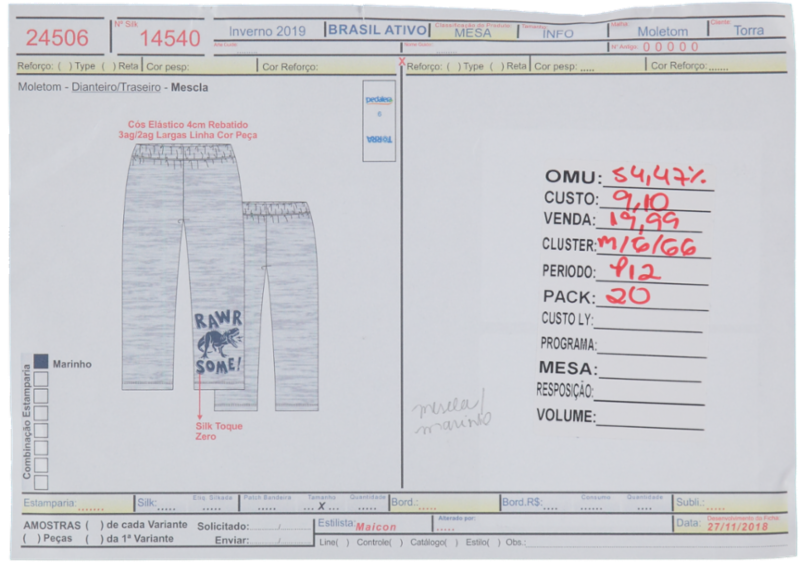 24506
Nº Silk
14540
Inverno 2019
BRASIL ATIVO
Classificação do Produto:
MESA
Tamanho:
INFO
Malha:
Moletom
Cliente:
Torra
Nº Antigo: 0 0 0 0 0
Reforço: ( ) Type ( ) Reta
Cor pesp:
Cor Reforço:
X
Reforço: ( ) Type ( ) Reta
Cor pesp: .....
Cor Reforço:.......
Moletom - Dianteiro/Traseiro - Mescla
TORRA
Cós Elástico 4cm Rebatido
3ag/2ag Largas Linha Cor Peça
RAWR
SOME!
Silk Toque
Zero
Combinação Estamparia
Marinho
OMU: 54,47%
CUSTO: 9,10
VENDA: 19,99
CLUSTER: M/G/GG
PERIODO: P12
PACK: 20
CUSTO LY:
PROGRAMA:
MESA:
RESPOSIÇÃO:
VOLUME:
mescla/
marinho
Estamparia: .......
Silk: .....
Etiq. Silcada
.....
Patch Bandeira
.....
Tamanho
... X ...
Quantidade
.....
Bord.: .....
Bord.R$: ....
Consumo
....
Quantidade
....
Subli.: .....
AMOSTRAS ( ) de cada Variante
( ) Peças ( ) da 1ª Variante
Solicitado: ....../......
Enviar: ....../......
Estilista: Maicon
Alterado por:
.....
Data:
Desenvolvimento da Ficha:
27/11/2018
Line( ) Controle( ) Catálogo( ) Estilo( ) Obs.: